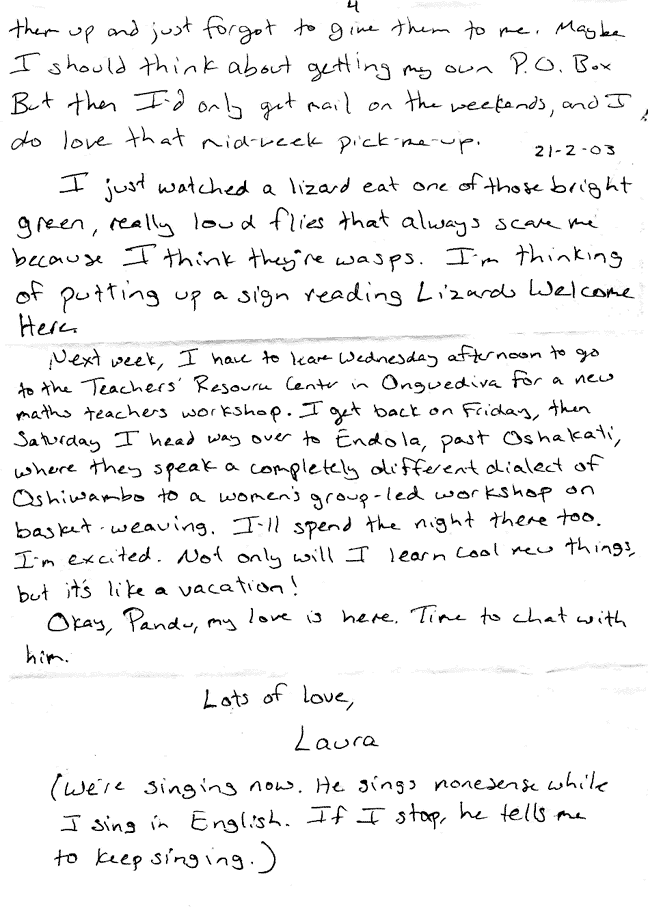 4
them up and just forgot to give them to me. Maybe
I should think about getting my own P.O. Box
But then I'd only get mail on the weekends, and I
do love that mid-week pick-me-up.
21-2-03
I just watched a lizard eat one of those bright
green, really loud flies that always scare me
because I think they're wasps. I'm thinking
of putting up a sign reading Lizards Welcome
Here.
Next week, I have to leave Wednesday afternoon to go
to the Teachers' Resource Center in Ongwediva for a new
maths teachers workshop. I get back on Friday, then
Saturday I head way over to Endola, past Oshakati,
where they speak a completely different dialect of
Oshiwambo to a women's group-led workshop on
basket-weaving. I'll spend the night there too.
I'm excited. Not only will I learn cool new things,
but it's like a vacation!
Okay, Pandu, my love is here. Time to chat with
him.
Lots of love,
Laura
(We're singing now. He sings nonesense while
I sing in English. If I stop, he tells me
to keep singing.)